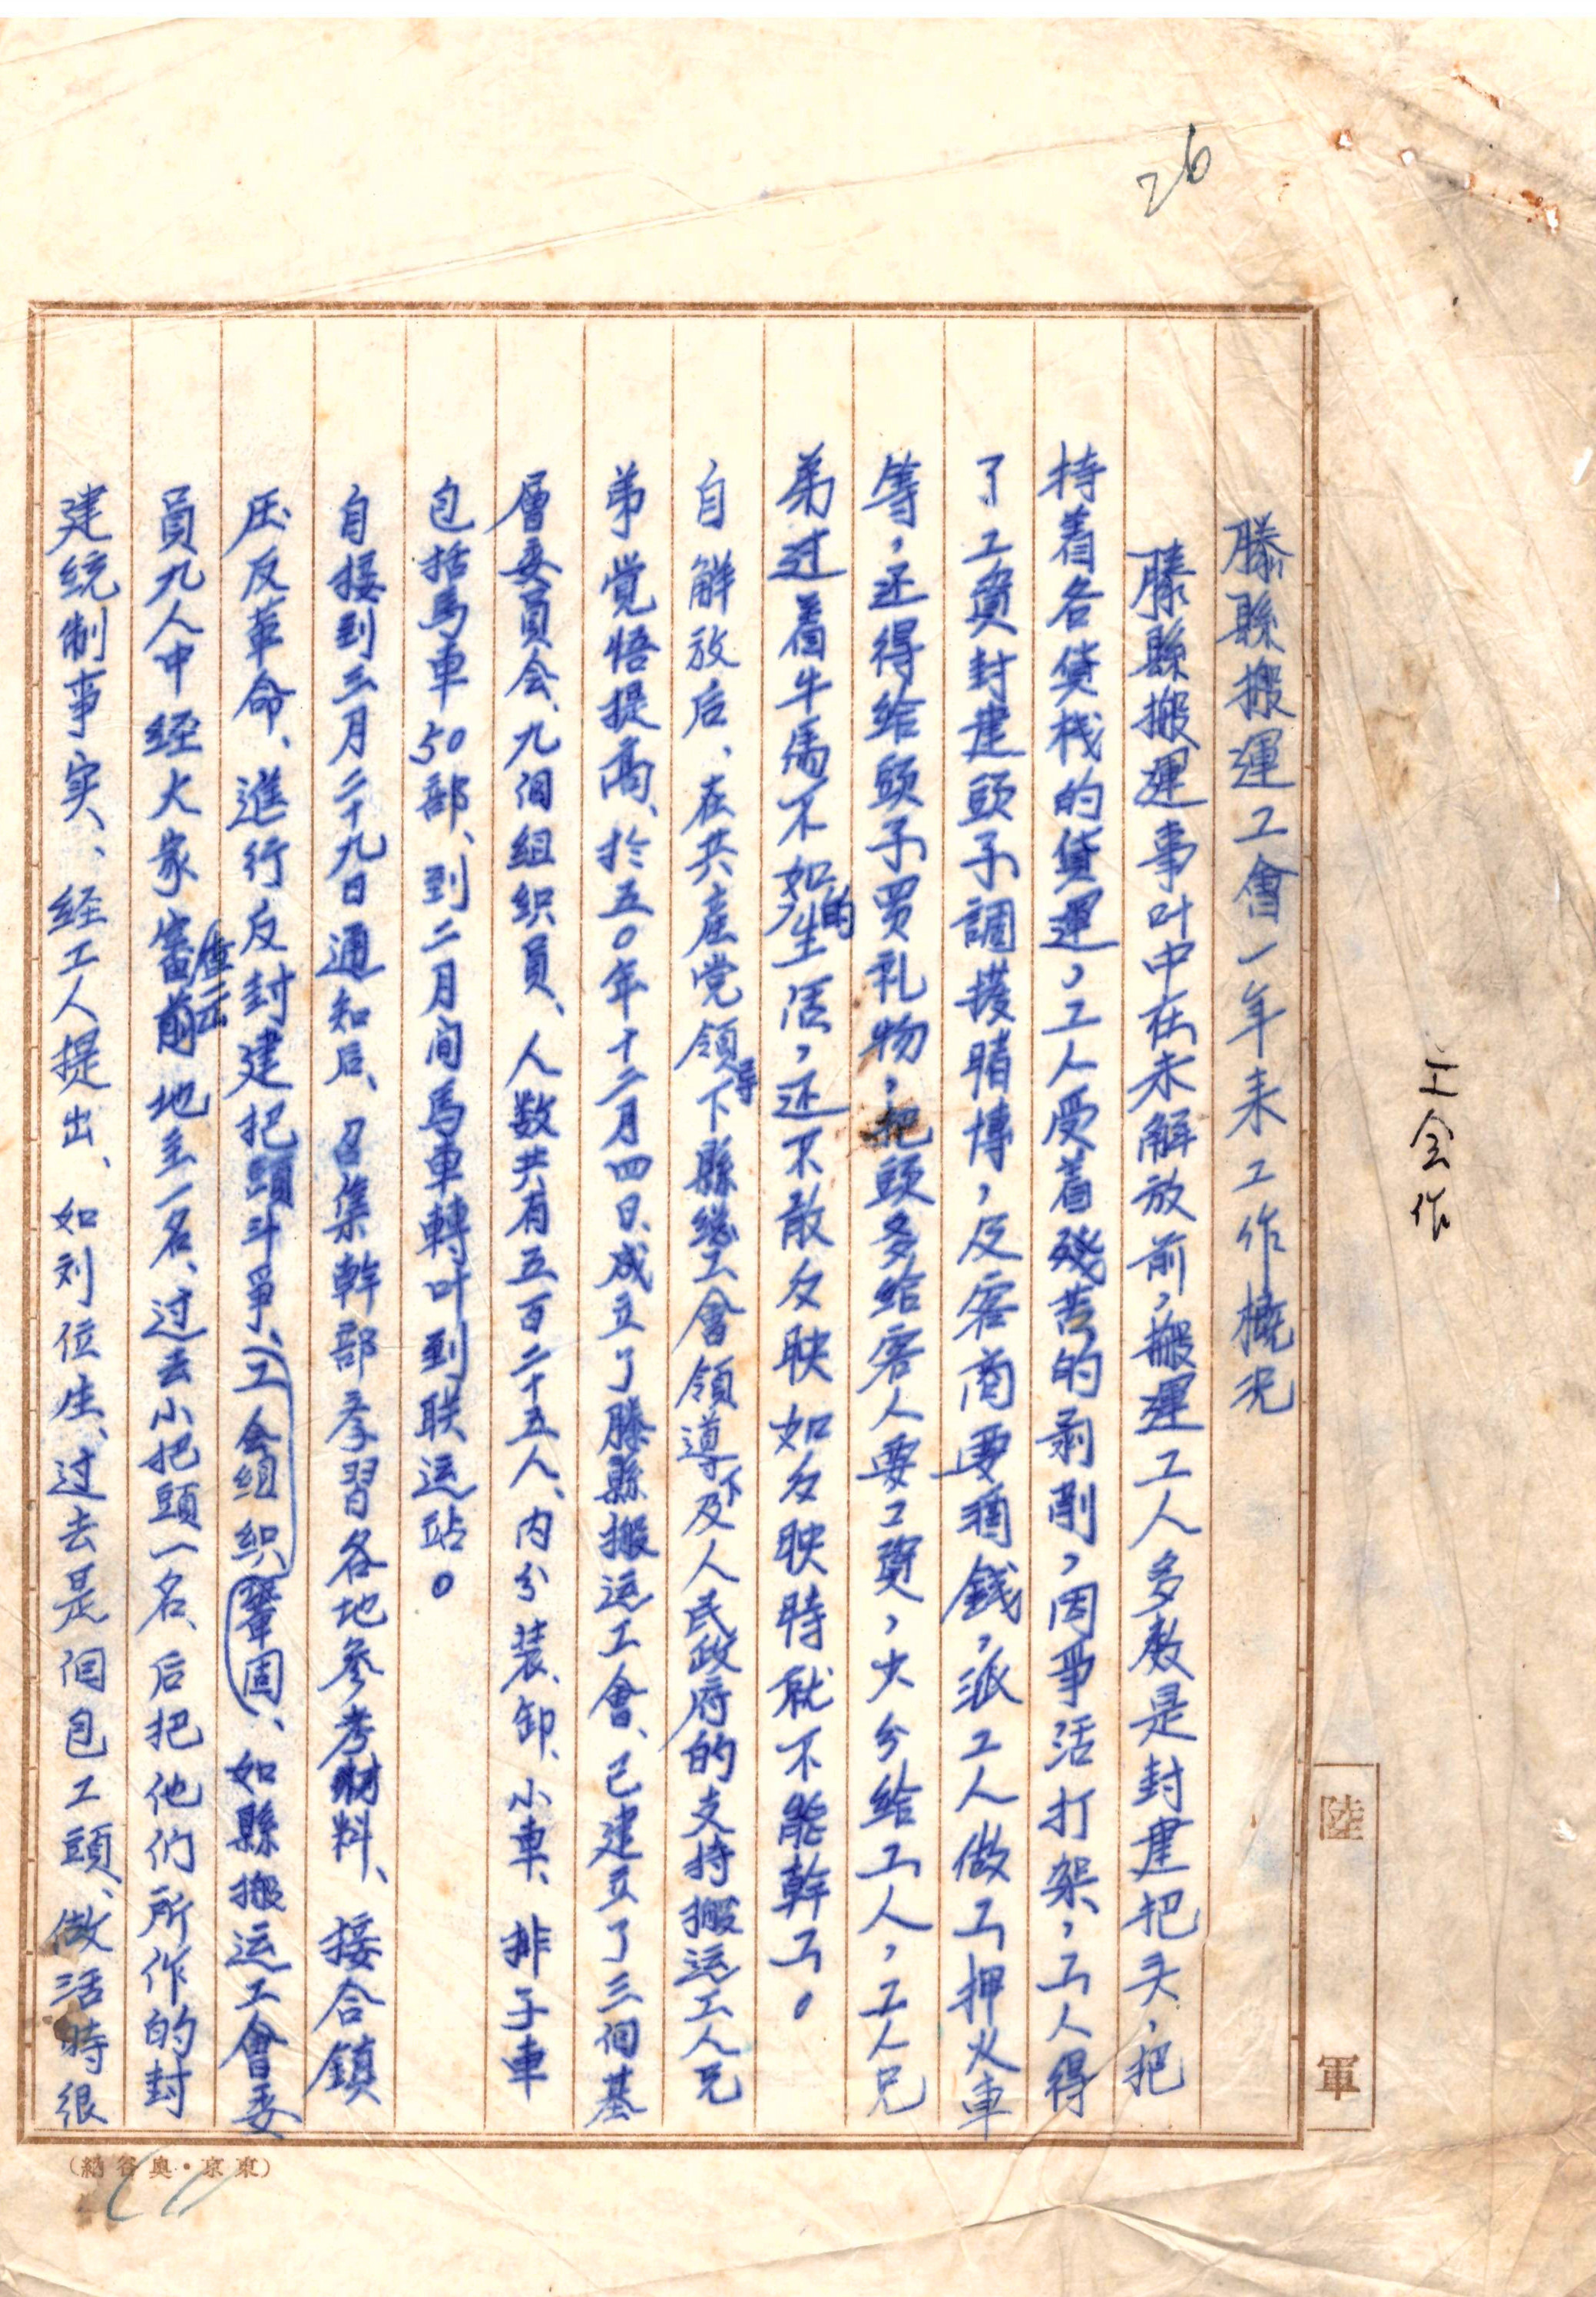 26
工会作
滕縣搬運工會一年来工作概况
滕縣搬運事叶中在未解放前，搬運工人多数是封建把头，把
持着各貨栈的貨運，工人受着殘苦的剥削，因争活打架，工人得
了工資封建頭子調撥賭博，反客商要酒錢，派工人做工押火車
等，还得给頭子买礼物，把頭多给客人要工資，少分给工人，工人兄
弟过着牛馬不如的生活，还不敢反映如反映時就不能幹工。
自解放后、在共产党領导下縣總工會領導下及人民政府的支持搬运工人兄
弟覚悟提高、於五0年十二月四日、成立了滕縣搬运工會、已建立了三個基
層委員会、九個組织員、人数共有五百二十五人、内分装、卸、小車、排子車
包括馬車50部、到二月间馬車轉叶到联运站。
自接到三月二十九日通知后、召集幹部学習各地参考材料、接合鎮
压反革命、進行反封建把頭斗爭、工会组织鞏固、如縣搬运工會委
員九人中经大家審查出地主一名、过去小把頭一名、后把他们所作的封
建统制事实、经工人提出、如刘位生、过去是個包工頭、做活時很
陸軍
（東京・奥谷納）